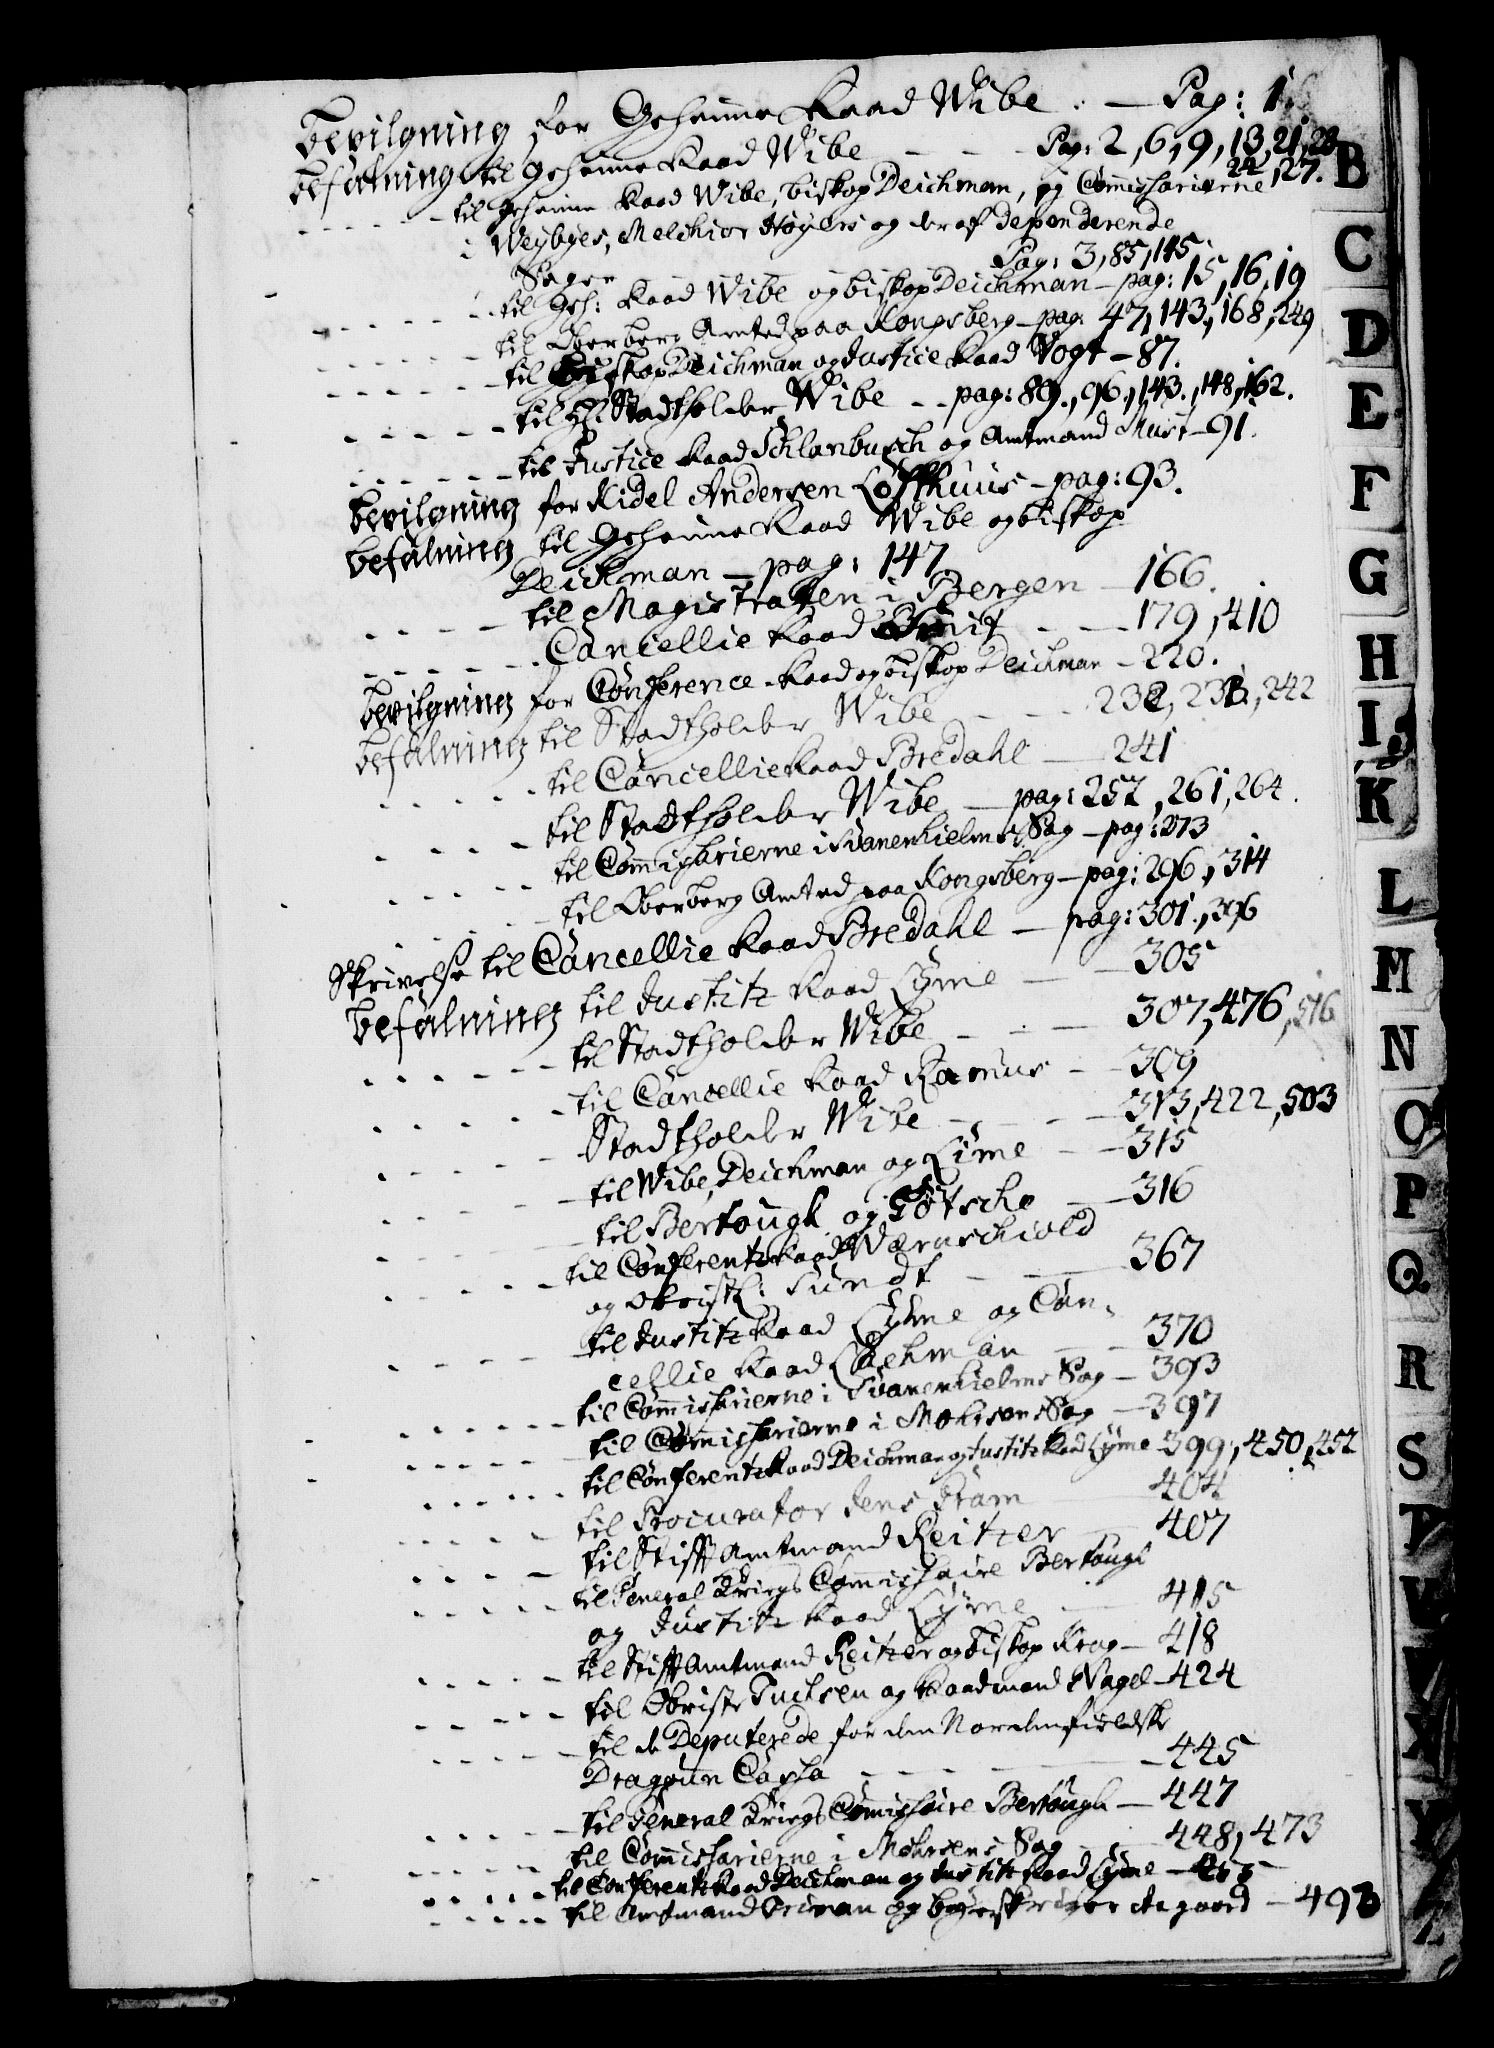 bevilgning for Geheime Raad Wibe . — Pag: 1
befalning til Geheime Raad Wibe - - - Pag: 2, 6, 9, 13, 21, 23
24, 27.
- - - - til Geheime Raad Wibe, biskop Deichman, og Commissarierne
i Weybyes, Melchior Høyers og der af dependerende
Sager Pag: 3, 85, 145
- - - - til Geh: Raad Wibe og biskop Deichman - pag: 15, 16, 19
- - - - til Oberberg Amted paa Kongsberg - pag: 47, 143, 168, 249
- - - - til biskop Deichman og Justice Raad Vogt - 87.
- - - - til Stadtholder Wibe - - pag: 89, 96, 143, 148, 162.
- - - - til Justice Raad Schlanbusch og Amtmand - 91.
bevilgning for Kidel Andersen Løffthuus - pag: 93.
befalning til Geheime Raad Wibe og biskop
Deichman — pag: 147
- - - - til Magistraten i Bergen — 166.
- - - - Cancellie Raad - - 179, 410
bevilgning for Conference-Raad og biskop Deichman - 220.
befalning til Stadtholder Wibe - - - 232, 242
- - - - til Cancellie Raad Bredahl — 241
- - - - til Stadtholder Wibe — pag: 257, 261, 264.
- - - - til Commissarierne i Svanenhielms Sag - pag: 273
- - - - til Oberberg Amted paa Kongsberg - pag: 296, 314
Skrivelse til Cancellie Raad Bredahl — pag: 301, 396
befalning til Justitz Raad Lyme — 305
- - - - til Stadtholder Wibe - - - 307, 476, 516
- - - - til Cancellie Raad Ramus - - 309
- - - - Stadtholder Wibe - - - 313, 422, 503
- - - - til Wibe, Deichman og Lime - - 315
- - - - til Bertough og Tötsche — 316
- - - - til Conferentz Raad Wærnschiold
og Obristl: Sundt — 367
- - - - til Justitz Raad Lyme og Can-
cellie Raad - - 370
- - - - til Commissarierne i Svanenhielms Sag - 393
- - - - til Commissarierne i Mohrsens Sag - 397
- - - - til Conferentz Raad Deichman og Justitz Raad Lyme 399, 450, 452
- - - - til Procurator Jens Fram — 404
- - - - til Stifft Amtmand Reitzer — 407
- - - - til General Krigs Commissaire Bertough
og Justitz Raad Lyme — 415
- - - - til Stifft Amtmand Reitzer og biskop Krog - 418
- - - - til Obriste Tuchsen og Raadmand Nagel - 424
- - - - til de Deputerede for den Nordenfieldske
Dragoun Cassa - - - 445
- - - - til General Krigs Commissaire Bertough — 447
- - - - til Commissarierne i Mohrsens Sag — 448, 473
- - - - til Conferentz Raad Deichman og Justitz Raad Lyme -
- - - - til Amtmand og byeskriver Aagaard - 493
B
C
D
E
F
G
H
I
K
L
M
N
O
P
Q
R
S
T
V
W
X
Y
Z